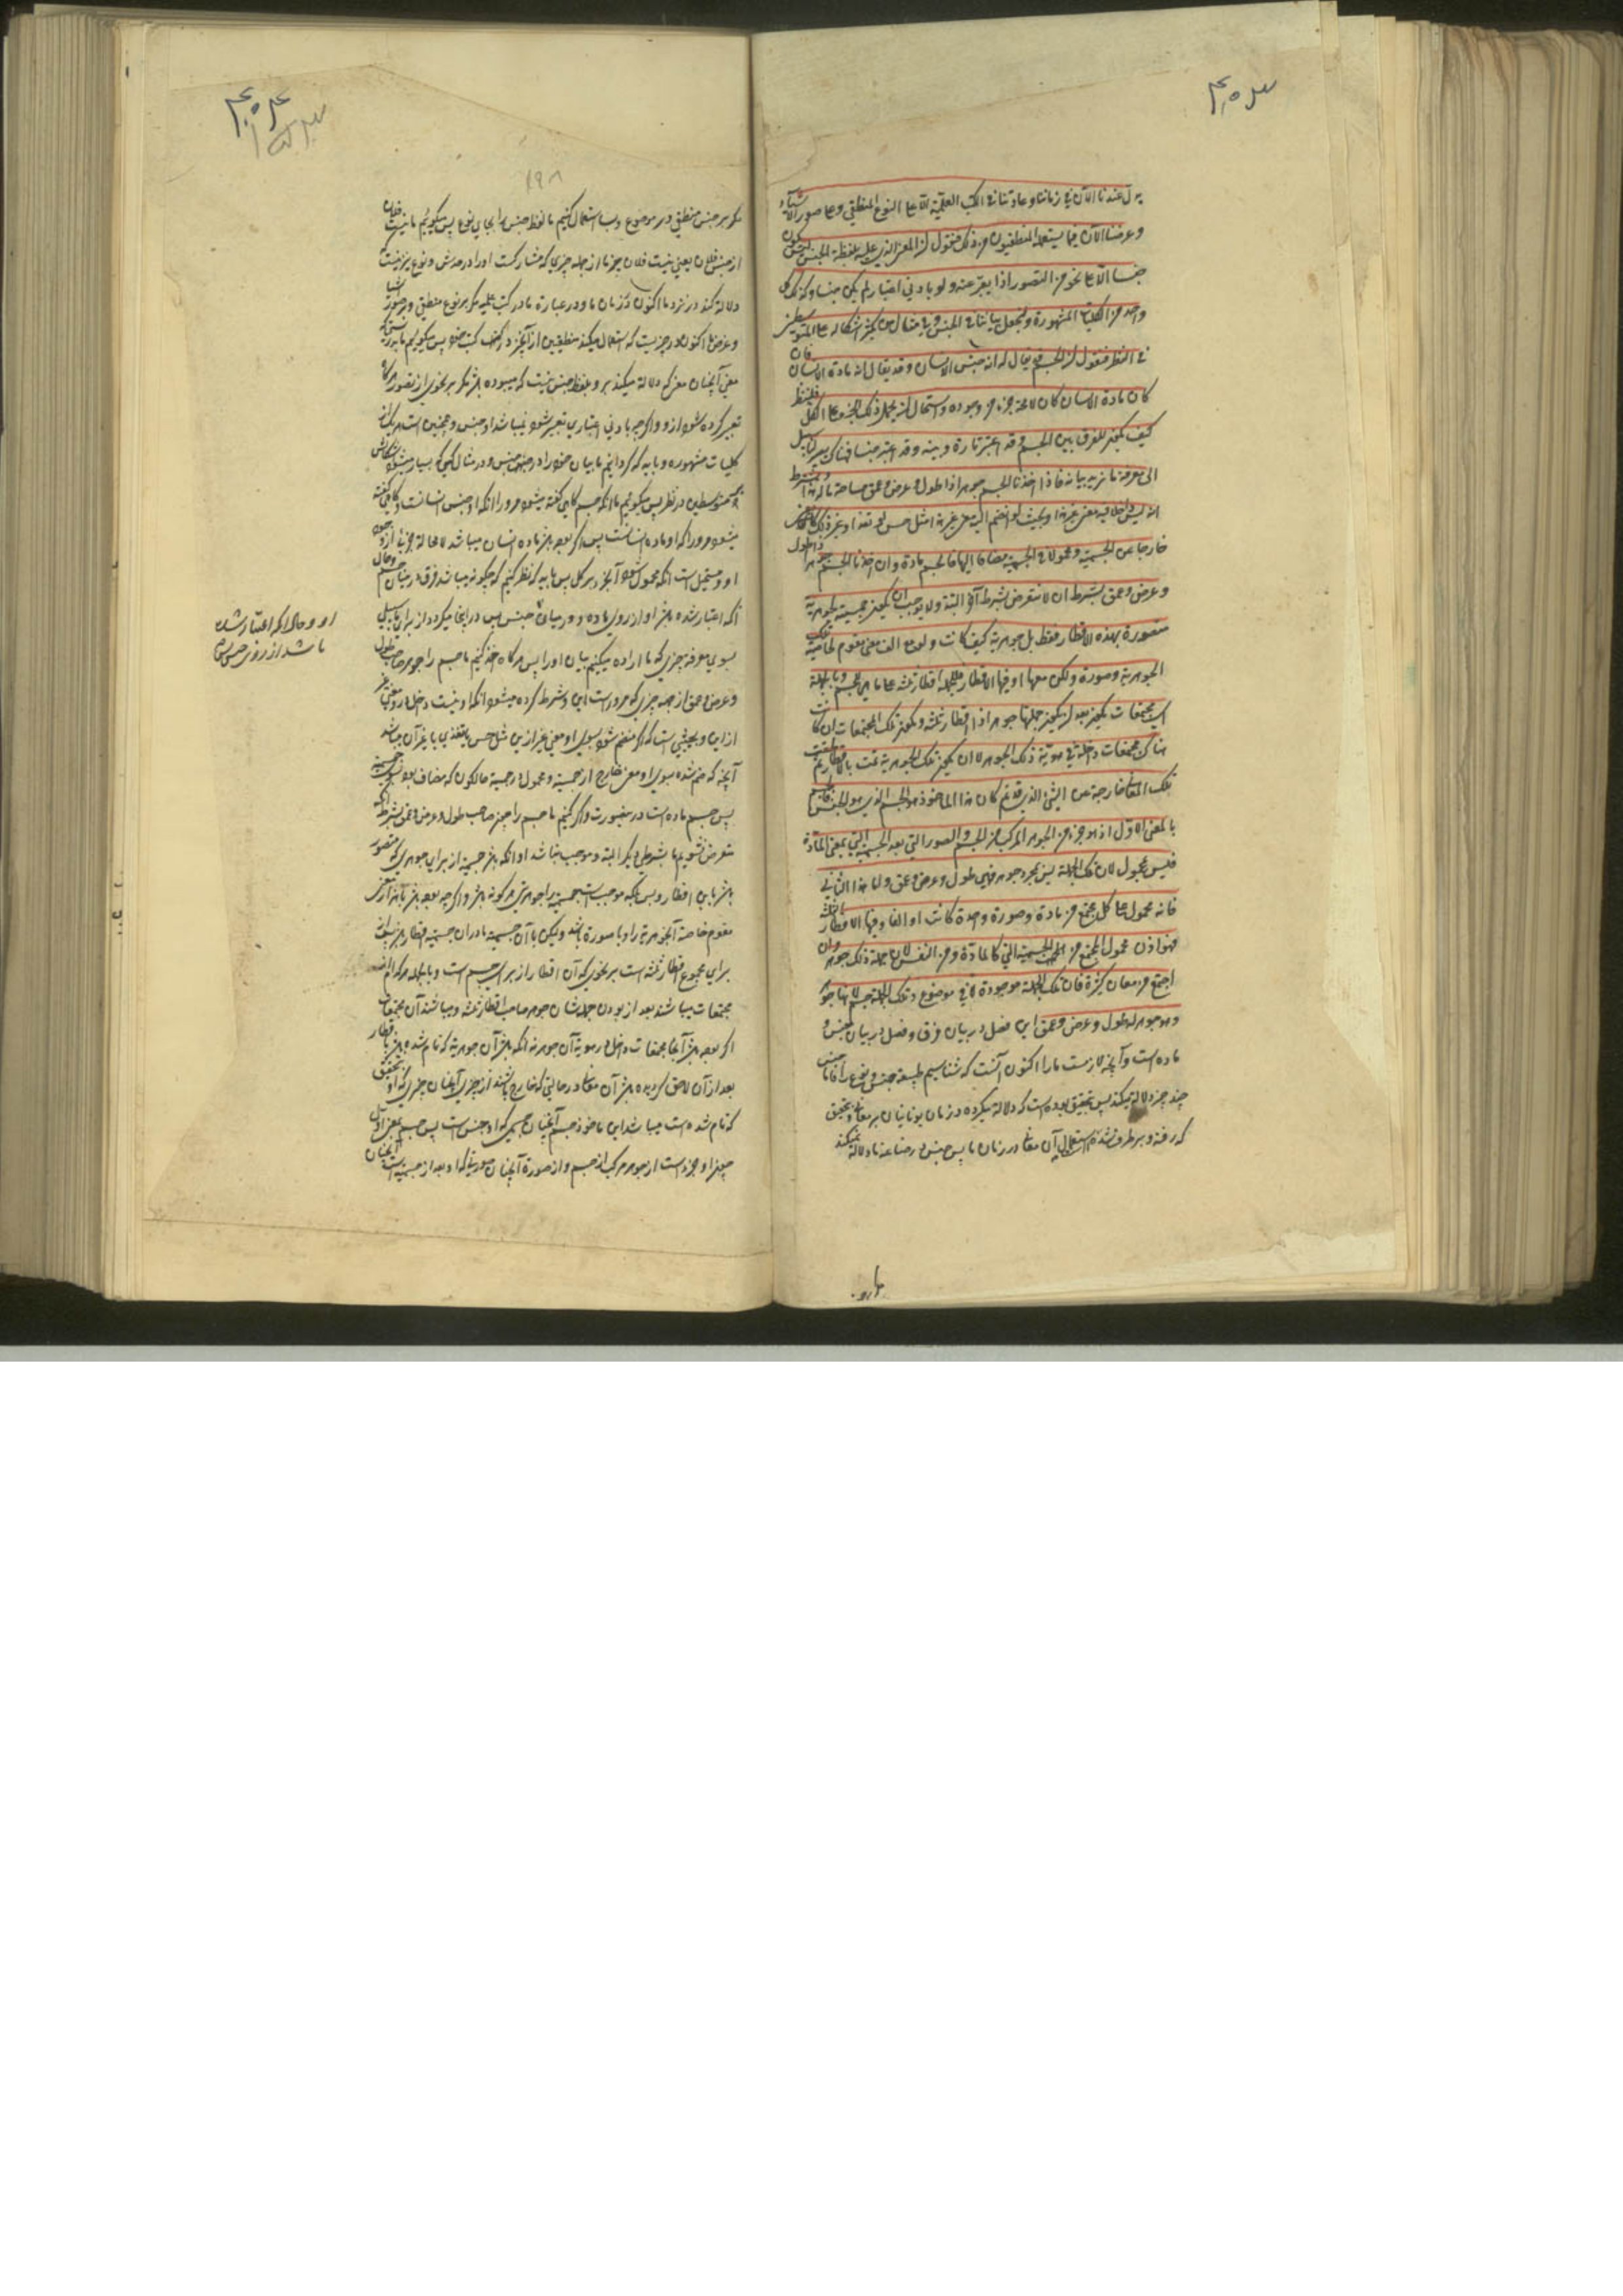 یدل عندنا الآن فی زماننا و عادتنا فی الکتب العلمیة الا علی النوع المنطقی و علی صور الاشیاء
و غرضنا الآن فیما یستعمله المنطقیون من ذلک فنقول ان المعنی الذی یدل علیه بلفظة الجنس لیس یکون
جنسا الا علی نحو من التصور اذا تغیر عنه ولو بادنی اعتبار لم یکن جنسا و کذلک کل
واحد من الکلیات المشهورة و لنجعل بیاننا فی الجنس و فی مثال یکثر اشکاله علی المتوسطین
فی النظر فنقول ان الجسم قد یقال له انه جنس الانسان و قد یقال له انه مادة الانسان فان
کان مادة الانسان کان لا محالة جزء من وجوده و استحال ان یحمل ذلک الجزء علی الکل فلینظر
کیف یکون الفرق بین الجسم و قد اعتبر مادة و بینه و قد اعتبر جنسا فهناک یصیر لنا سبیل
الی معرفة ما نرید بیانه فاذا اخذنا الجسم جوهرا ذا طول و عرض و عمق من جهة ما له هذا و بشرط
انه لیس داخلا فیه معنی غیر هذا و بحیث لو انضم الیه معنی غیر هذا مثل حس او تغذ او غیر ذلک کان معنی
خارجا عن الجسمیة و محمولا فی الجسمیة مضافا الیها فالجسم مادة و ان اخذنا الجسم جوهرا ذا طول
و عرض و عمق بشرط ان لا نتعرض بشرط آخر البتة و لا یوجب ان یکون جسمیته لجوهریة
متصورة بهذه الاقطار فقط بل جوهریة کیف کانت ولو مع الف معنی مقوم لخاصیة تلک
الجوهریة و صورة ولکن معها او فیها الاقطار فللجملة اقطار ثلثة علی ما هی للجسم و بالجملة
ای مجتمعات یکون بعد ان یکون جملتها جوهرا ذا اقطار ثلثة و یکون تلک المجتمعات ان کانت
هناک مجتمعات داخلة فی هویة ذلک الجوهر لا ان یکون تلک الجوهریة تمت بالاقطار ثم لحقت
تلک المعانی خارجة عن الشئ الذی قد تم کان هذا المأخوذ هو الجسم الذی هو الجنس فالجسم
بالمعنی الاول اذ هو جزء من الجوهر المرکب من الجسم و الصور التی بعد الجسمیة التی بمعنی المادة
فلیس بمحمول لان تلک الجملة لیس بمجرد جوهر فهی طول و عرض و عمق و اما هذا الثانی
فانه محمول علی کل مجتمع من مادة و صورة واحدة کانت او الفا و فیها الاقطار الثلثة
فهو اذن محمول علی المجتمع من الجسمیة التی کالمادة و من النفس لان جملة ذلک جوهر و ان
اجتمع من معان کثیرة فان تلک الجملة موجودة لا فی موضوع و تلک الجملة جسم لانها جوهر
و هو جوهر له طول و عرض و عمق این فصل در بیان فرق و فصل در بیان جنس و
ماده است و آنچه لازمست ما را اکنون آنست که شناسیم طبیعة جنس و نوع را فاما جنس
چند چیز دلالة میکند پس بتحقیق بوده است که دلالة میکرده در زمان یونانیان بر معانی و بتحقیق
که رفته و برطرف شده استعمال آن معانی در زمان ما پس جنس در صناعة ما دلالة نمیکند
مگر بر جنس منطقی و بر موضوع و بسا استعمال کنیم ما لفظ جنس را بجای نوع پس میگوئیم ما نیست فلان
از جنس فلان یعنی نیست فلان چیز ما از جمله چیزی که مشارکست او را در حدش و نوع نیز نیست
دلالة کند در نزد ما اکنون در زمان ما و در عبارة ما در کتب علمیه مگر بر نوع منطقی و بر صورت اشیا
و غرض ما اکنون در چیزیست که استعمال میکنند منطقیین از آنچیز در کتب پس میگوئیم ما بدرستیکه
معنی آنچنان معنی که دلالة میکند بر او بلفظ جنس نیست که میبوده باشد مگر بر نحوی از تصور هرگاه
تعبیر کرده شود از او و اگرچه بادنی اعتباری تغییر شود نمیباشد او جنس و همچنین است هر یک از
کلیات مشهوره و باید که گردانیم ما بیان خود را در جنس و در مثالی که بسیار میشود اشکالش
بر متوسطین در نظر پس میگوئیم ما آنکه جسم گاهی گفته میشود مر او را آنکه او جنس انسانست و گاهی گفته
میشود مر او را که او ماده انسانست پس اگر بوده باشد ماده انسان میباشد لا محالة جزئی از وجود
او و مستحیل است آنکه محمول شود آنجزء بر کل پس باید که نظر کنیم که چگونه میباشد فرق در میان جسم و حال
آنکه اعتبار شده باشد او از روی ماده و در میان جنس پس در اینجا میگردد از برای ما سبیل
بسوی معرفة چیزی که ما اراده میکنیم بیان او را پس هرگاه اخذ کنیم ما جسم را جوهر صاحب طول
و عرض و عمق از جهة چیزی که مر او راست این و شرط کرده میشود آنکه او نیست داخل در او معنی غیر
از این و بحیثیتی است که اگر منضم شود بسوی او معنی غیر از این مثل حس یا تغذی یا غیر آن میباشد
آنچه که ضم شده بسوی او معنی خارج از جسمیة و محمول در جسمیة حالکون که مضاف بود بسوی جسمیة
پس جسم ماده است در اینصورت و اگر اخذ کنیم ما جسم را چیز صاحب طول و عرض و عمق بشرط آنکه
متعرض نشویم ما بشرطی دیگر البتة و موجب نباشد او آنکه باشد جسمیة از برای جوهری که متصور
باشد باین اقطار و بس بلکه موجب است جسمیة را جوهریتی هر گونه باشد و اگرچه بوده باشد با هزار معنی
مقوم خاصة آنجوهریة را و با صورة باشد ولیکن با آن جسمیة یا در آن جسمیة اقطار باشد پس
برای مجموع اقطار ثلثه است بر نحوی که آن اقطار از برای جسم است و بالجمله هر کدام
مجتمعات میباشند بعد از بودن جمله شان جوهر صاحب اقطار ثلثه و میباشند آن مجتمعات
اگر بوده باشد آنجا مجتمعات داخل در هویة آن جوهر نه آنکه باشد آن جوهریة که تمام شده باشد باقطار
بعد از آن لاحق گردیده باشد آن معانی در حالتی که خارج باشند از چیزی آنچنان چیزی که او بتحقیق
که تمام شده است میباشد این ماخوذ جسم آنچنان جسمی که او جنس است پس جسم بمعنی اول
چون او جزء است از جوهر مرکب از جسم و از صورة آنچنان صورتی که او بعد از جسمیة است آنچنان
او و حال آنکه اعتبار شده
باشد از روی جنس